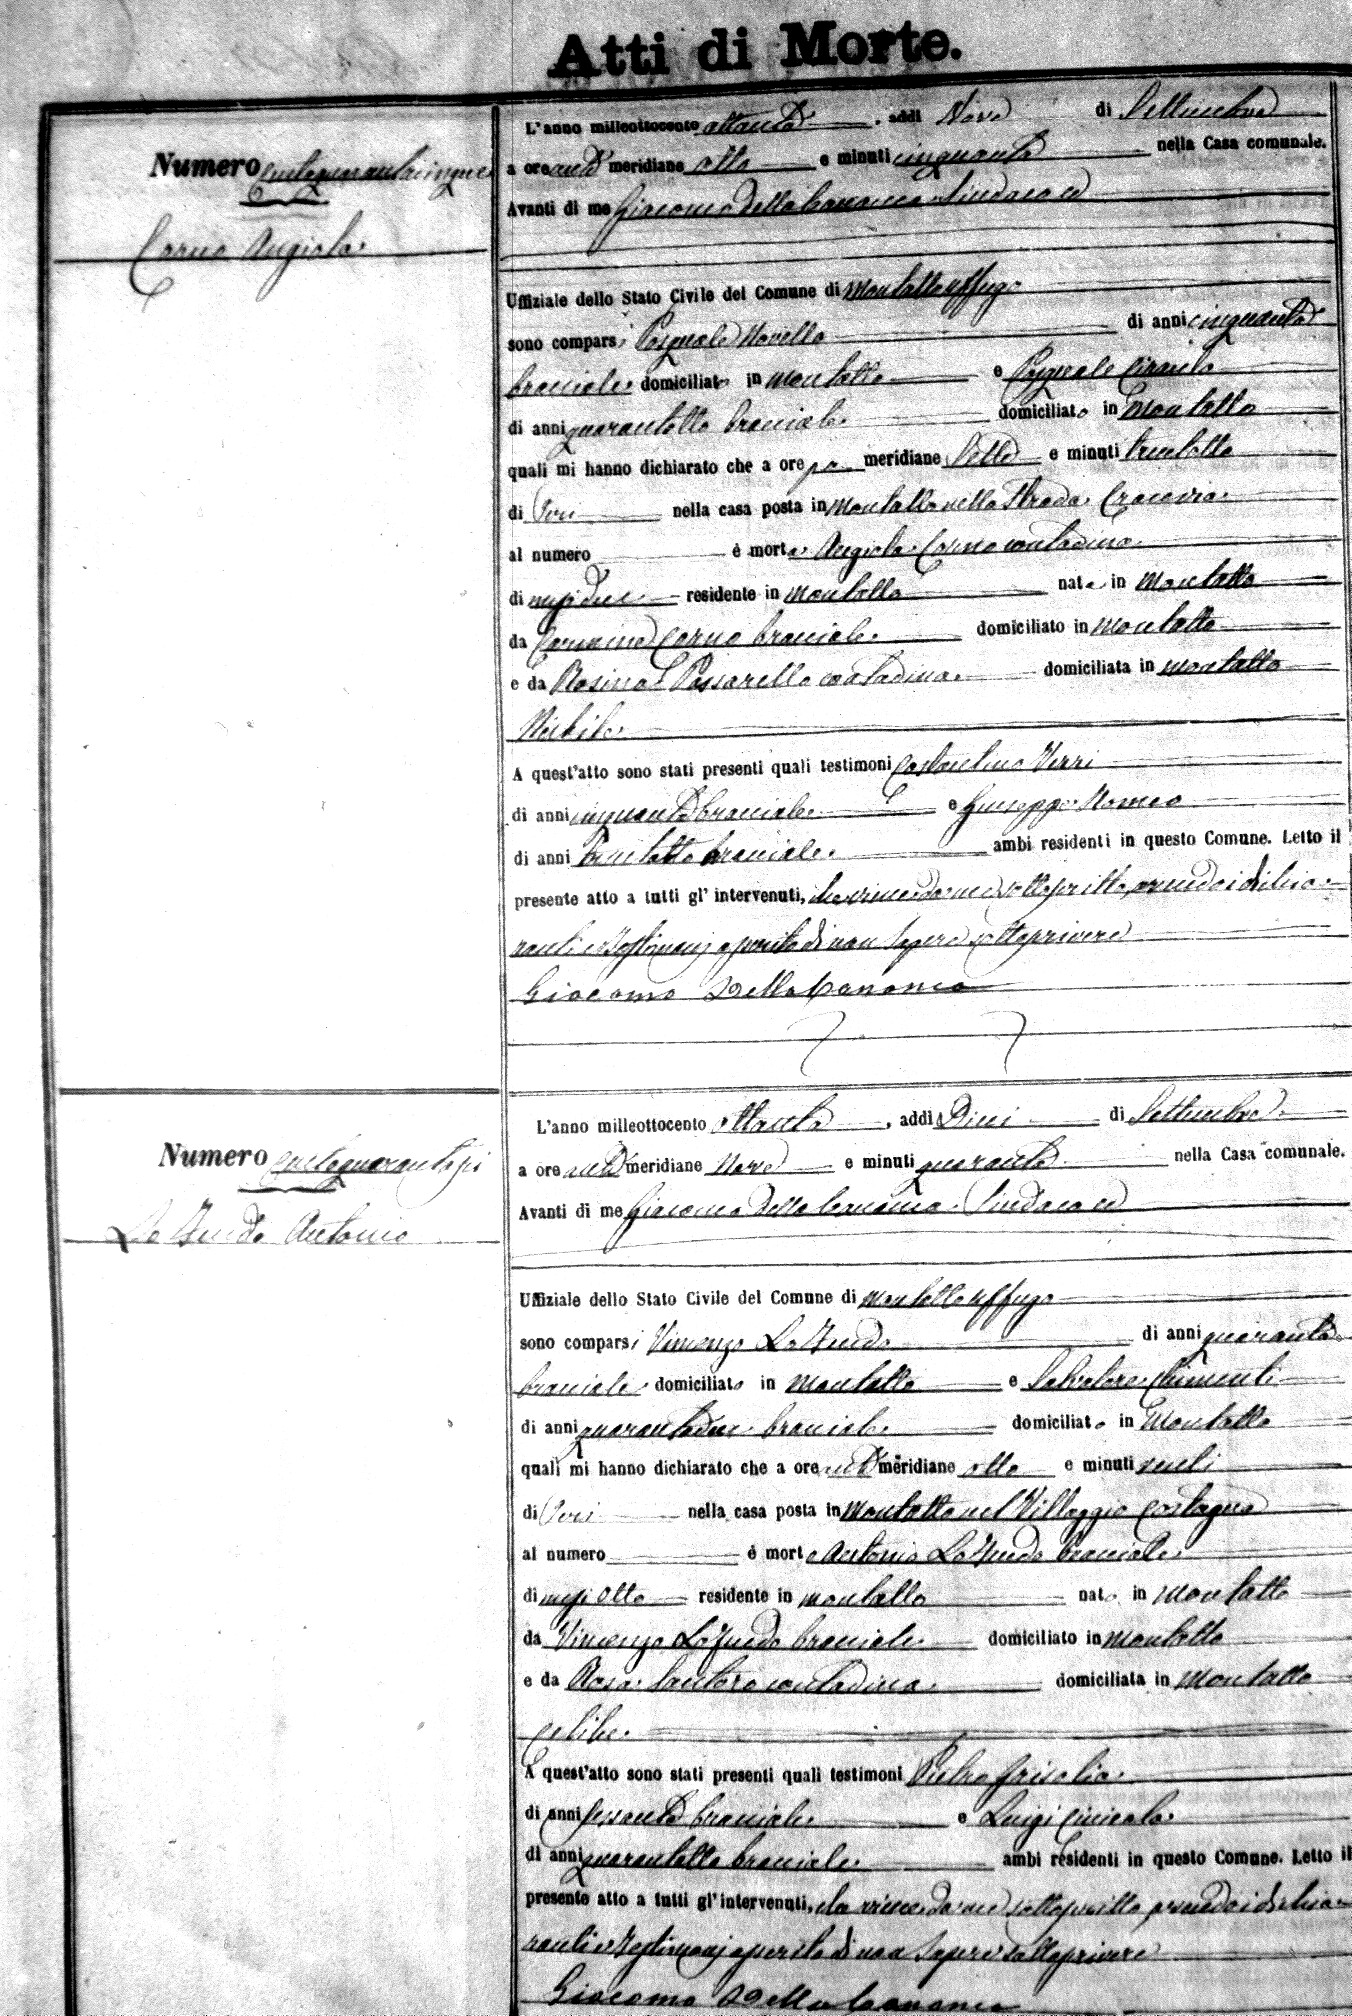 Atti di Morte.
Numero Centoquarantacinque
Corno Angiola
L'anno milleottocento ottanta, addi Nove di Settembre
a ore antᵉ meridiane otto e minuti cinquanta nella Casa comunale.
Avanti di me Giacomo Della Cananea Sindaco ed
Uffiziale dello Stato Civile del Comune di Montalto Uffugo
sono comparsi Pasquale Novello di anni cinquanta
bracciale domiciliato in Montalto e Pasquale
di anni quarantotto bracciale domiciliato in Montalto
quali mi hanno dichiarato che a ore po meridiane Sette e minuti trentotto
di Ieri nella casa posta in Montalto nella Strada Cracovia
al numero è morta Angiola Corno contadina
di mesi due residente in Montalto nata in Montalto
da Carmine Corno bracciale domiciliato in Montalto
e da Rosina Passarello contadina domiciliata in Montalto
Nubile
A quest'atto sono stati presenti quali testimoni Costantino Verri
di anni cinquanta bracciale e Giuseppe Romeo
di anni trentotto bracciale ambi residenti in questo Comune. Letto il
presente atto a tutti gl' intervenuti, che viene da me sottoscritto, avendo i dichia-
ranti e Testimonj asserito di non sapere sottoscrivere
Giacomo Della Cananea
Numero Centoquarantasei
Lo Feudo Antonio
L'anno milleottocento ottanta, addi Dieci di Settembre
a ore antᵉ meridiane Nove e minuti quaranta nella Casa comunale.
Avanti di me Giacomo Della Cananea Sindaco ed
Uffiziale dello Stato Civile del Comune di Montalto Uffugo
sono comparsi Vincenzo Lo Feudo di anni quaranta
bracciale domiciliato in Montalto e Salvatore Chimenti
di anni quarantadue bracciale domiciliato in Montalto
quali mi hanno dichiarato che a ore antᵉ meridiane otto e minuti venti
di Ieri nella casa posta in Montalto nel Villaggio Castagna
al numero è morto Antonio Lo Feudo bracciale
di mesi otto residente in Montalto nato in Montalto
da Vincenzo Lo Feudo bracciale domiciliato in Montalto
e da Rosa Santoro contadina domiciliata in Montalto
Celibe
A quest'atto sono stati presenti quali testimoni Pietro Grisolia
di anni sessanta bracciale e Luigi
di anni quarantotto bracciale ambi residenti in questo Comune. Letto il
presente atto a tutti gl'intervenuti, che viene da me sottoscritto, avendo i dichia-
ranti e Testimonj asserito di non sapere sottoscrivere
Giacomo Della Cananea